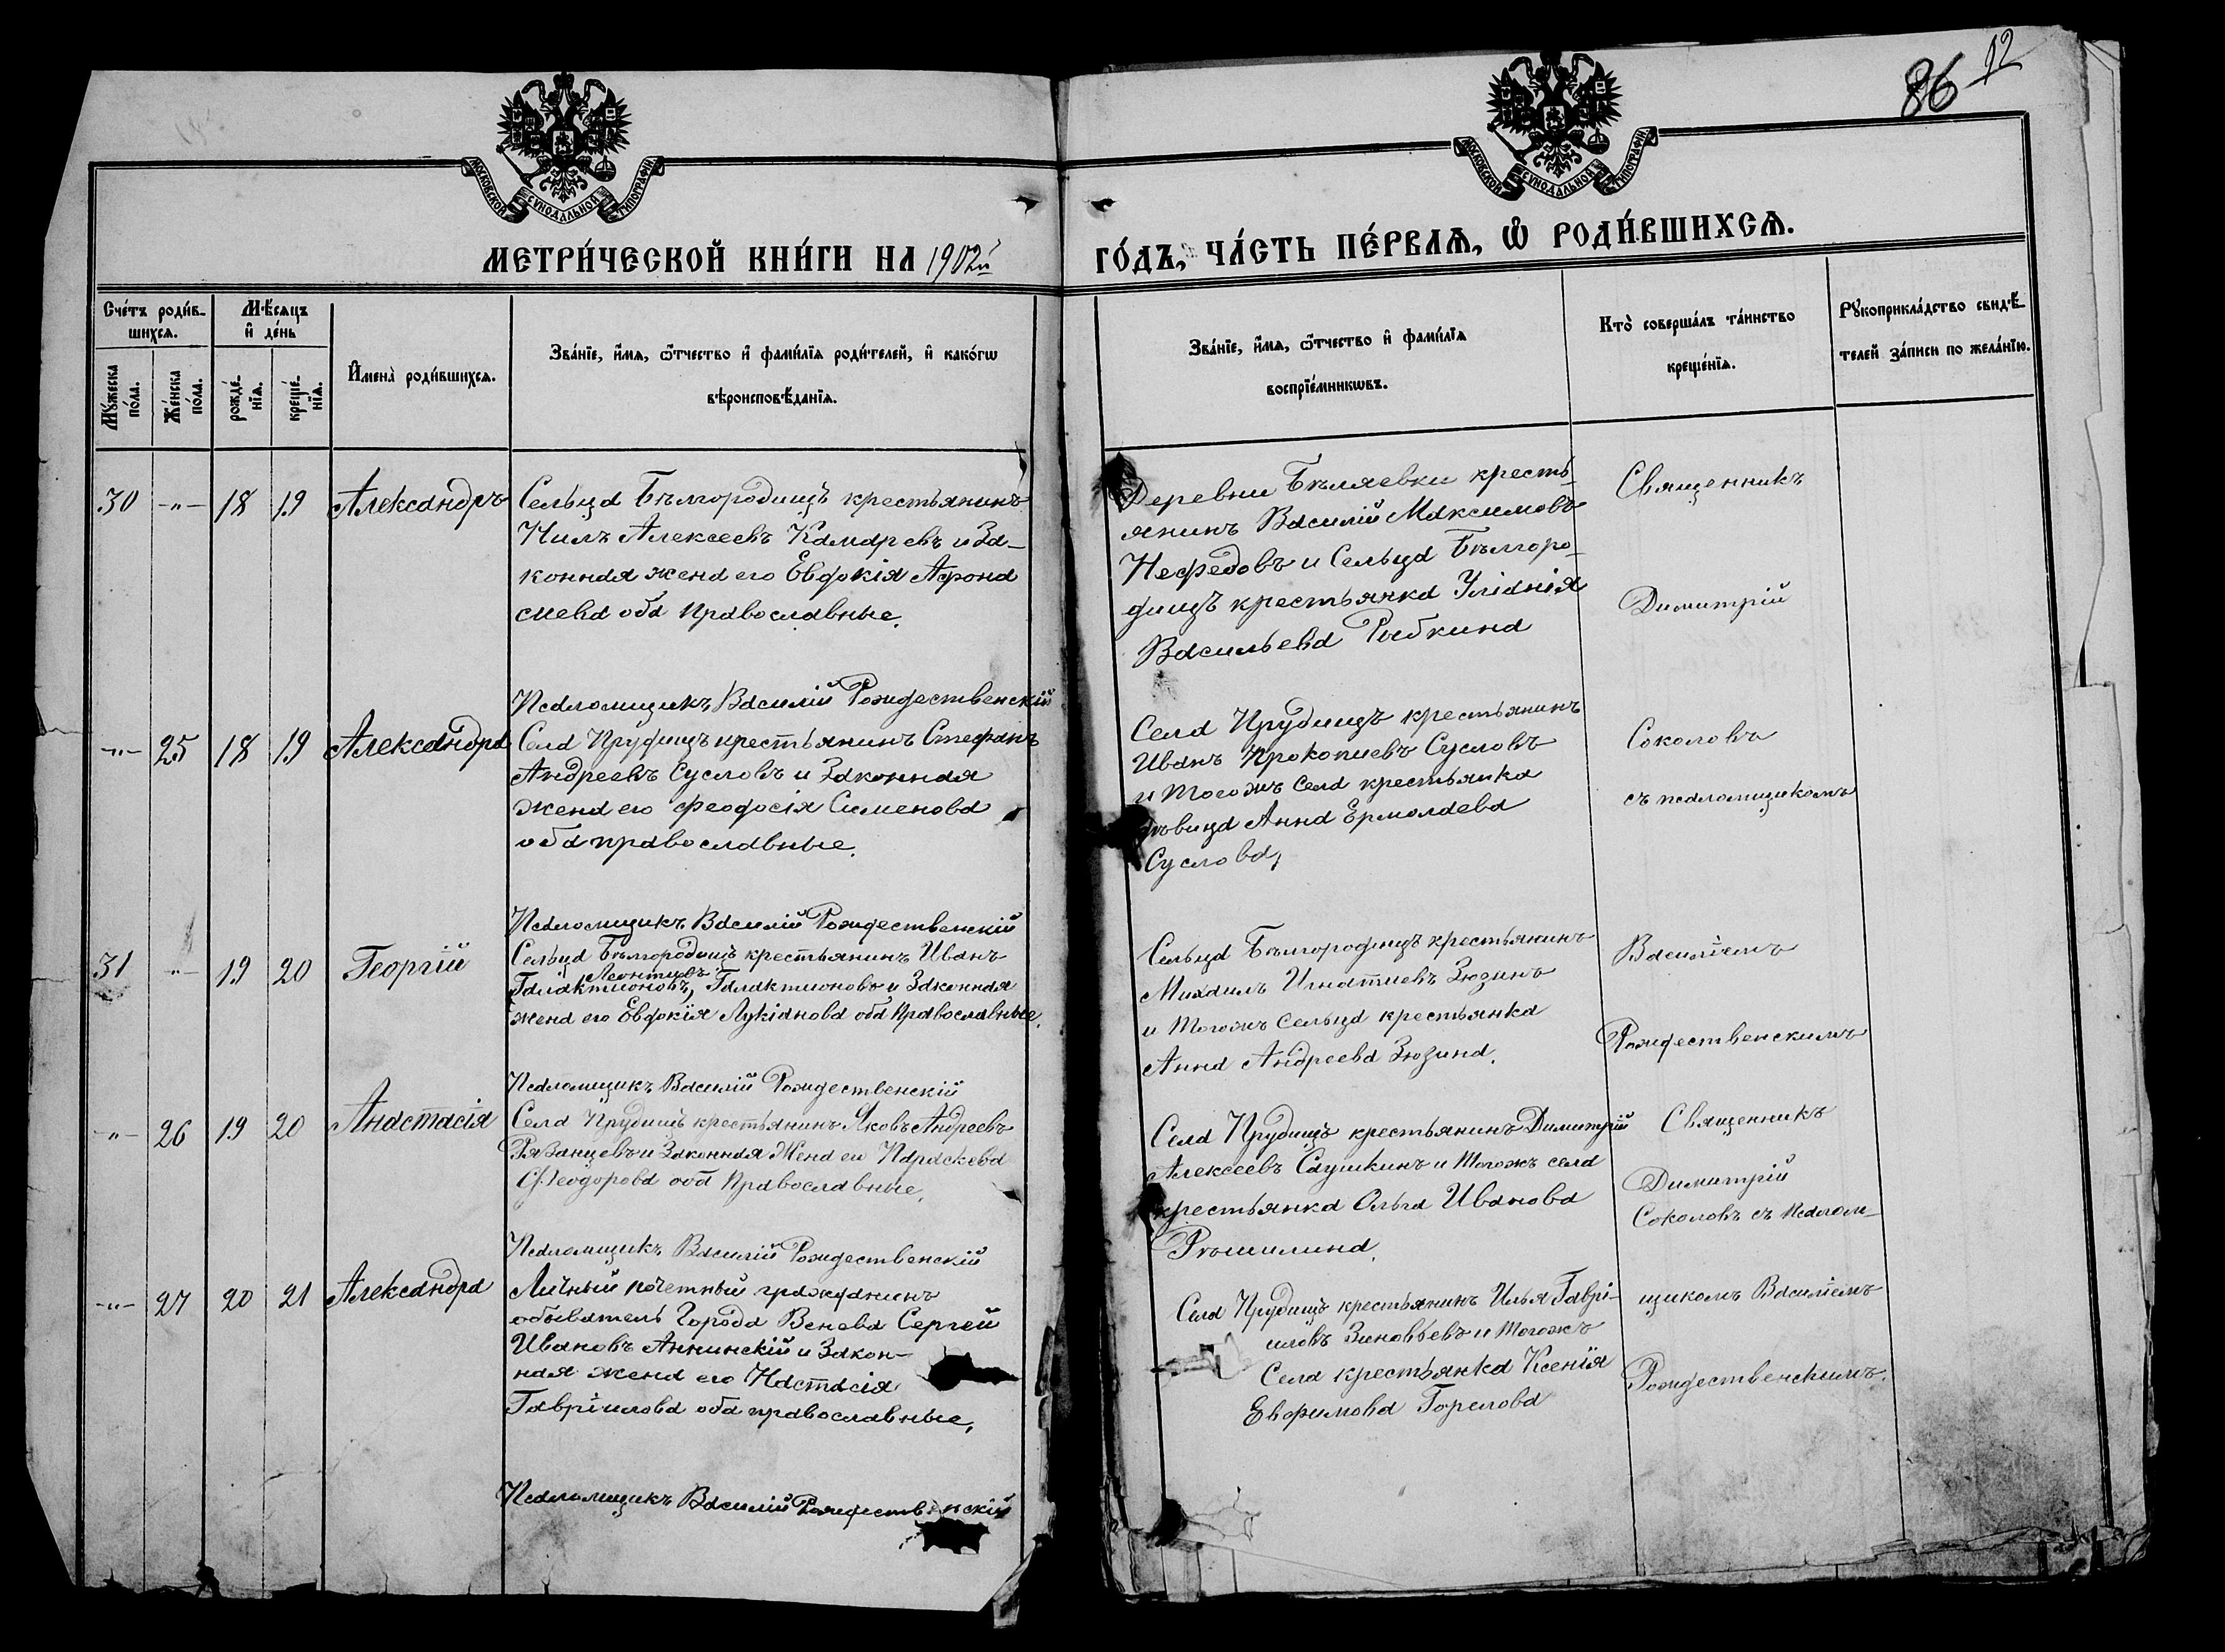 86 12
МОСКОВСКОЙ СѴНОДАЛЬНОЙ ТИПОГРАФІИ
МОСКОВСКОЙ СѴНОДАЛЬНОЙ ТИПОГРАФІИ
МЕТРИ́ЧЕСКОЙ КНИ́ГИ НА 1902й
ГО́ДЪ, ЧА́СТЬ ПЕ́РВАѦ, Ѽ РОДИ́ВШИХСѦ.
Сче́тъ роди́в-
шихсѧ.
Мꙋ́жеска
по́ла.
Же́нска
по́ла.
Мѣ́сѧцъ
и҆ де́нь
рожде́-
нїѧ.
креще́-
нїѧ.
И҆мена̀ роди́вшихсѧ.
Зва́нїе, и҆́мѧ, ѻ҆́тчество и҆ фами́лїѧ роди́телей, и҆ како́гѡ
вѣроисповѣ́данїѧ.
Зва́нїе, и҆́мѧ, ѻ҆́тчество и҆ фами́лїѧ
воспрїе́мникѡвъ.
Кто̀ соверша́лъ та́инство
креще́нїѧ.
Рꙋкоприкла́дство свидѣ́-
телей за́писи по жела́нїю.
30 -"- 18 19 Александръ
Сельца Бѣлгородищъ крестьянинъ
Нилъ Алексеевъ Камаревъ и За-
конная жена его Евдокія Афона
сиева оба православные.
Деревни Бѣляевки кресть-
янинъ Василій Максимовъ
Нефедовъ и Сельца Бѣлгоро-
дищъ крестьянка Уліанія
Васильева Рыбкина
Священникъ
Димитрій
Псаломщикъ Василій Рождественскій
-"- 25 18 19 Александра
Села Прудищъ крестьянинъ Стефанъ
Андреевъ Сусловъ и Законная
жена его Феодосія Сименова
оба православные.
Села Прудищъ крестьянинъ
Иванъ Прокопиевъ Сусловъ
и тогожъ села крестьянка
дѣвица Анна Ермолаева
Суслова,
Соколовъ
съ псаломщикомъ
Псаломщикъ Василій Рождественскій
31 -"- 19 20 Георгій
Сельца Бѣлгородищъ крестьянинъ Иванъ
Леонтиевъ
Галактионовъ, Галактионовъ и Законная
жена его Евдокія Лукіанова оба Православные.
Сельца Бѣлгородищъ крестьянинъ
Михаилъ Игнатиевъ Зюзинъ
и тогожъ сельца крестьянка
Анна Андреева Зюзина.
Василіемъ
Рождественскимъ
Псаломщикъ Василій Рождественскій
-"- 26 19 20 Анастасія
Села Прудищъ крестьянинъ Яковъ Андреевъ
Рязанцевъ и Законная Жена его Параскева
Феодорова оба Православные.
Села Прудищъ крестьянинъ Димитрій
Алексеевъ Саушкинъ и тогожъ села
крестьянка Ольга Иванова
Рѣшилина.
Священникъ
Димитрій
Соколовъ съ Псалом-
Псаломщикъ Василій Рождественскій
-"- 27 20 21 Александра
Личный почетный гражданинъ
обыватель Города Венева Сергей
Ивановъ Аннинскій и Закон-
ная жена его Настасія
Гавріилова оба православные.
Села Прудищъ крестьянинъ Илья Гаврі-
иловъ Зиновьевъ и тогожъ
Села крестьянка Ксенія
Евфимова Горелова
щикомъ Василіемъ
Рождественскимъ.
Псаломщикъ Василій Рождественскій